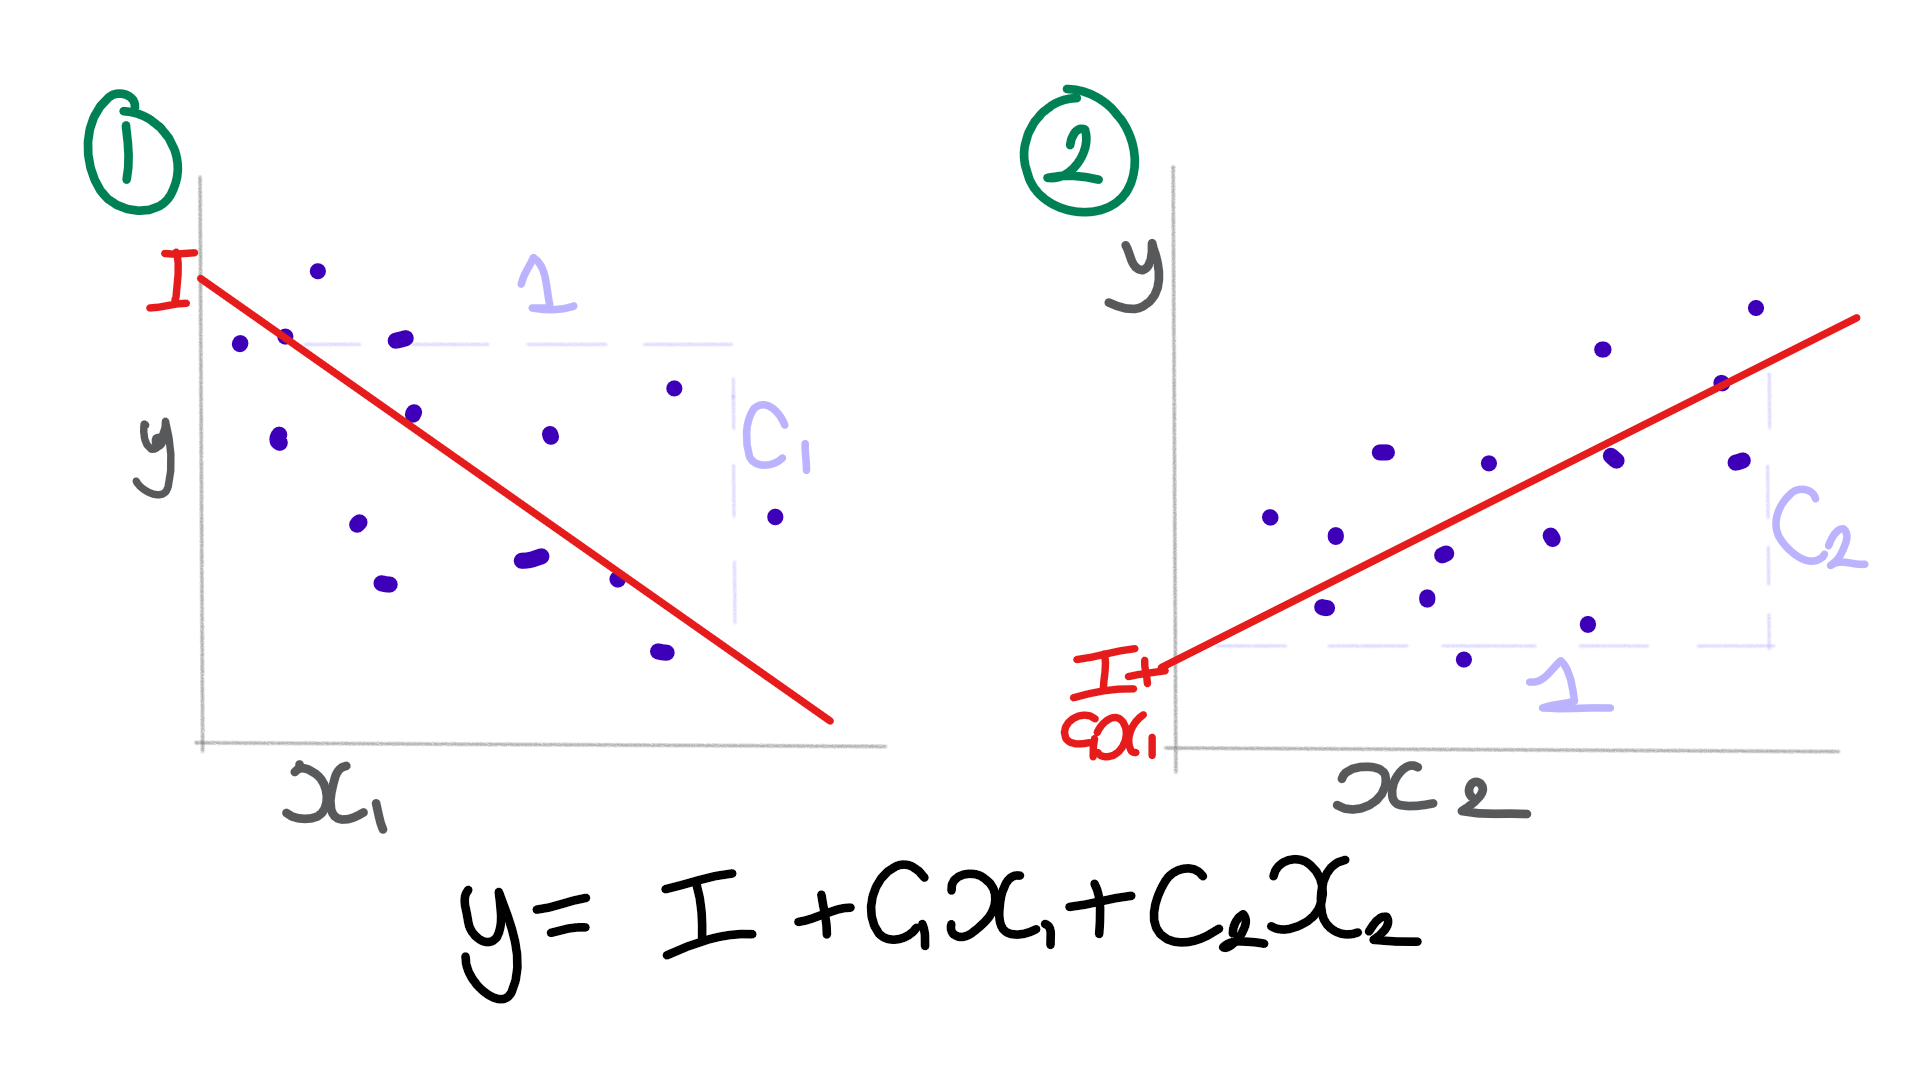 1
I
1
C₁
y
x₁
2
y
C₂
1
I+
C₁x₁
x₂
y = I + C₁x₁ + C₂x₂